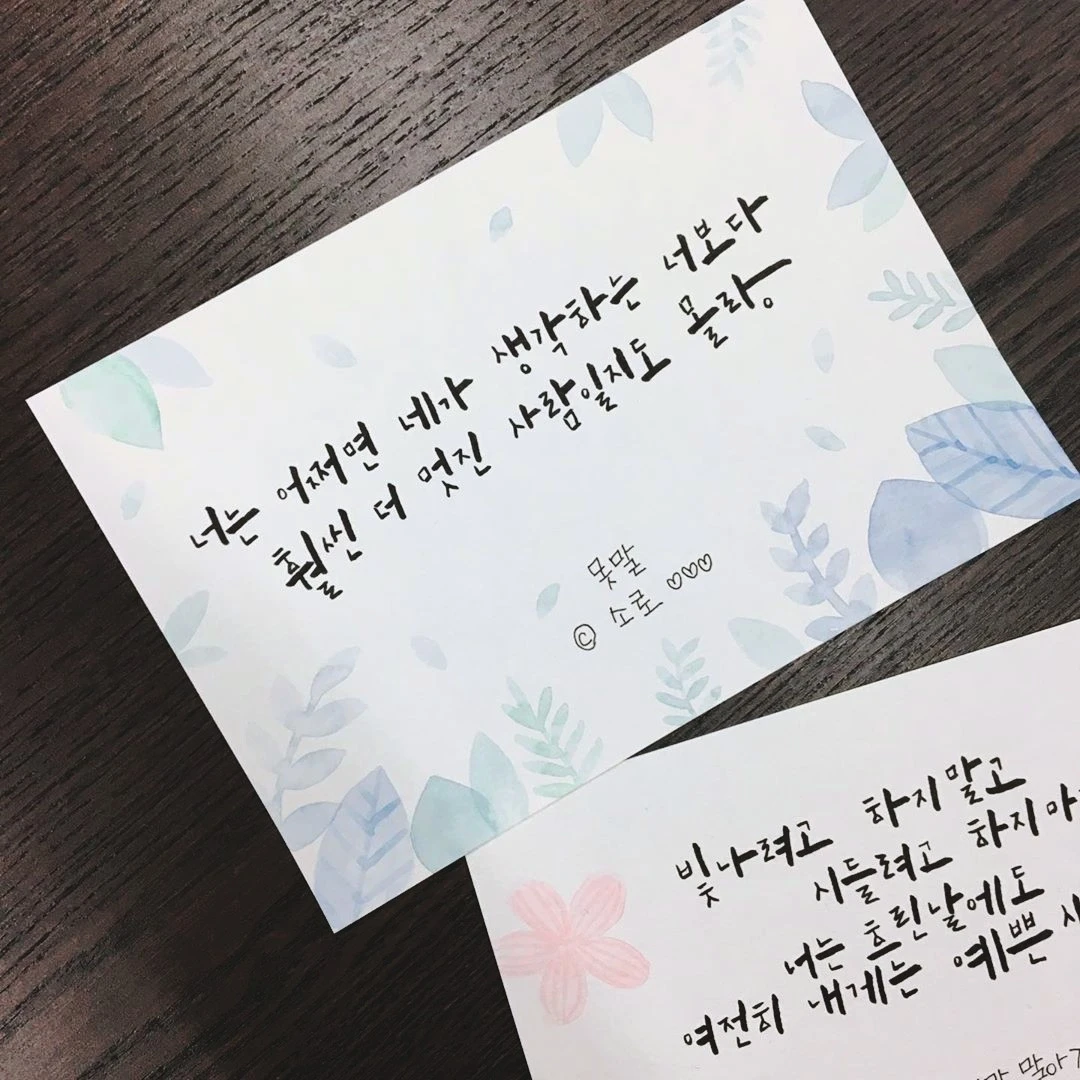 너는 어쩌면 네가 생각하는 너보다
훨씬 더 멋진 사람일지도 몰라。
못말
ⓒ 소로 ♡♡♡
빛나려고 하지말고
시들려고 하지마
너는 흐린날에도
여전히 내게는 예쁜